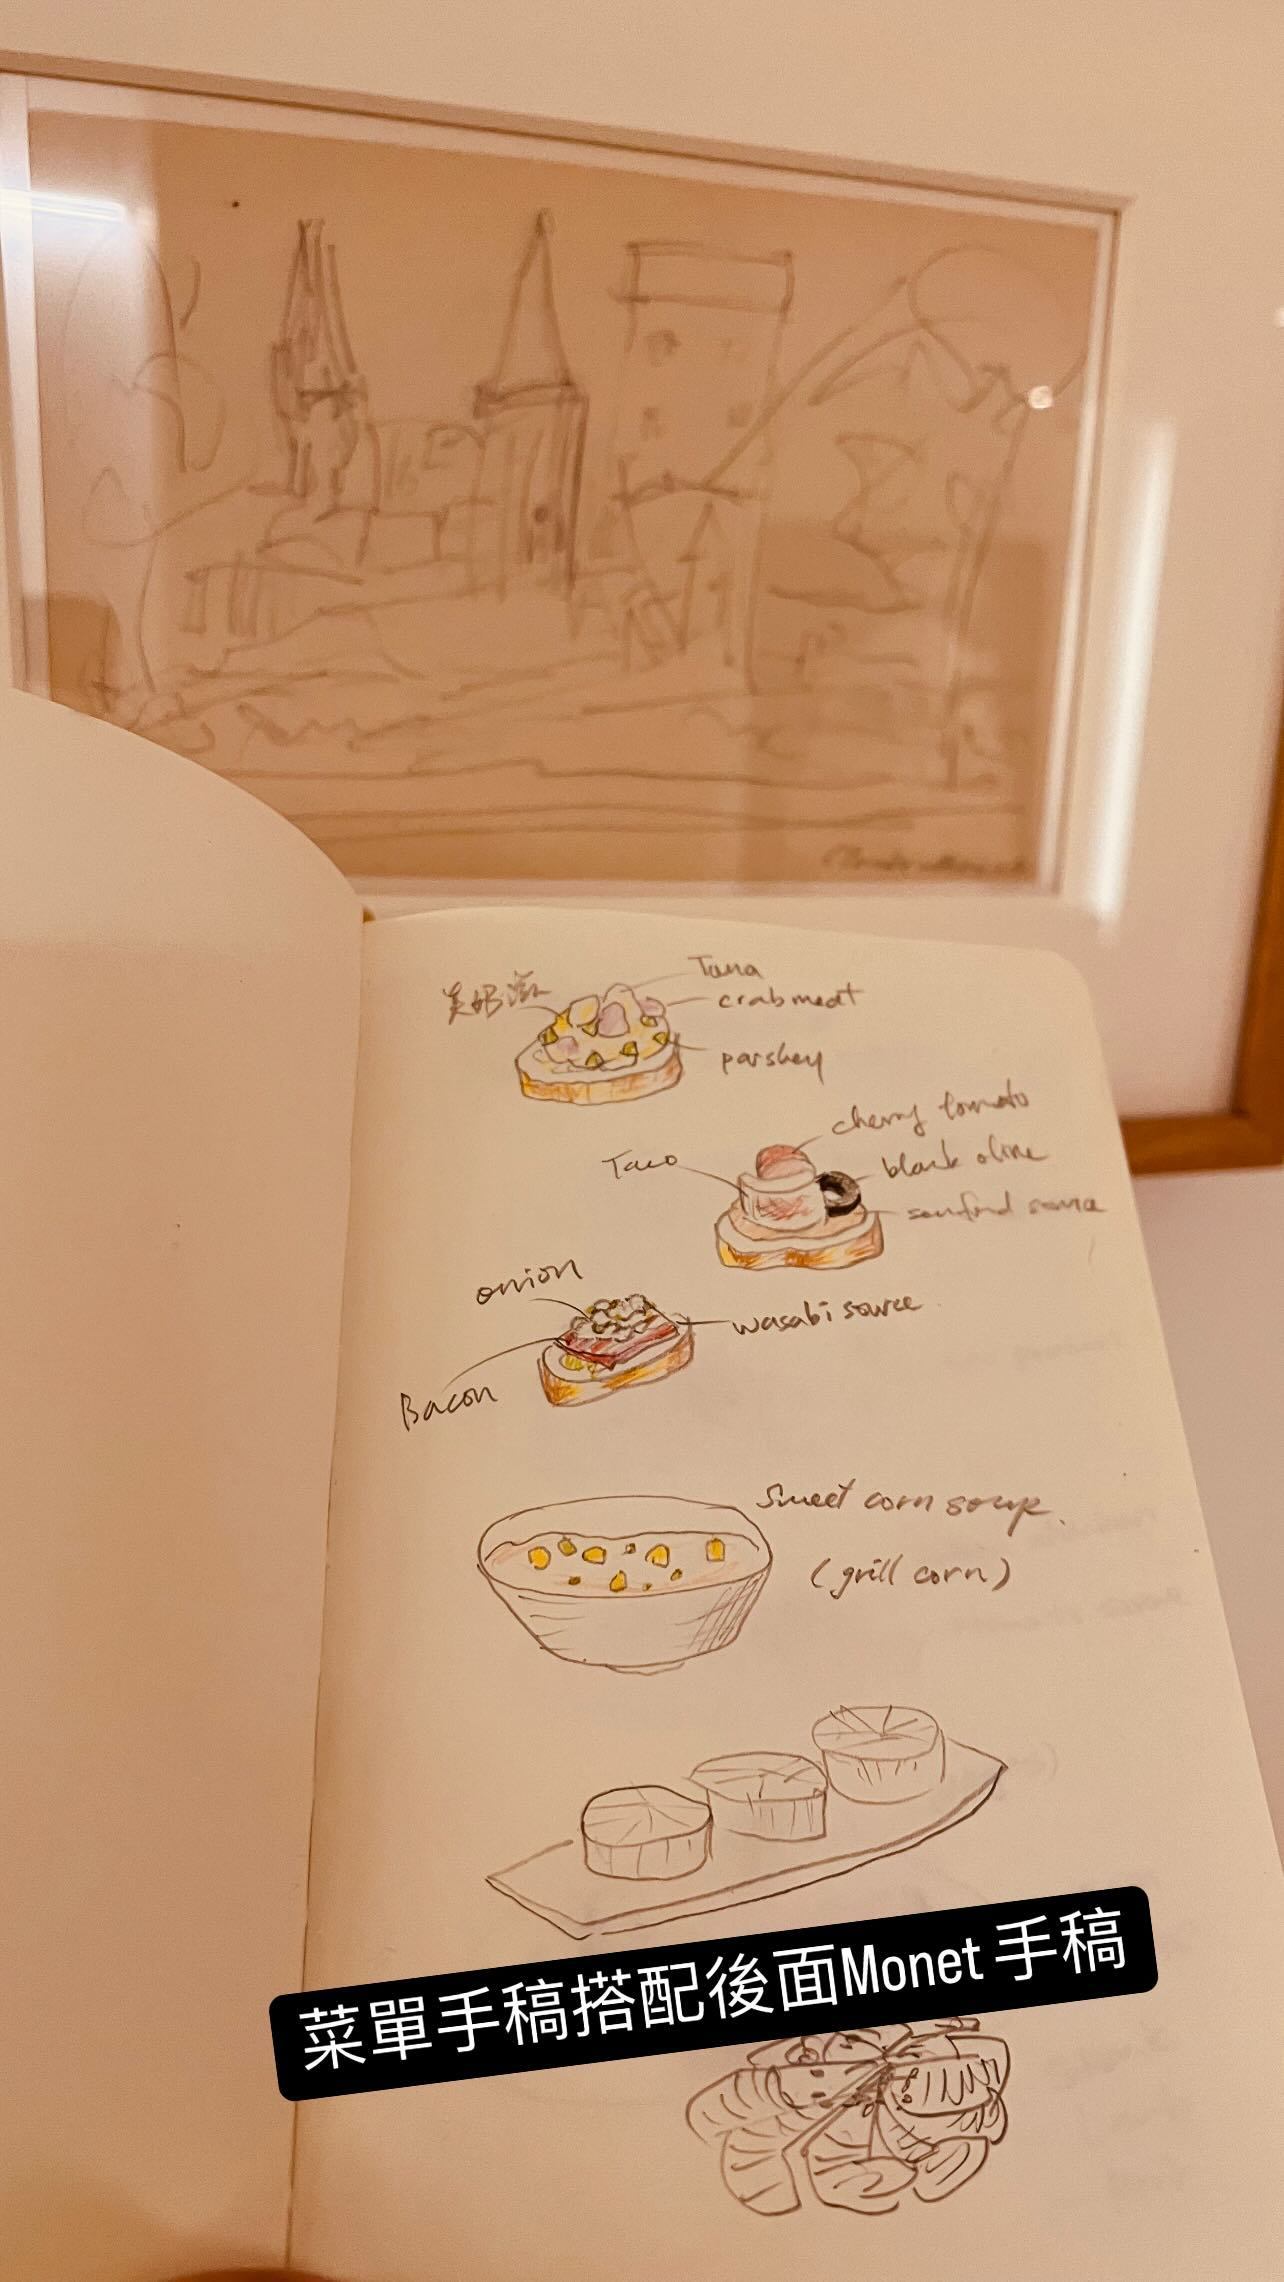 美奶滋
Tuna
crab meat
parsley
cherry tomato
Taco
black olive
onion
wasabi source
Bacon
Sweet corn soup.
(grill corn)
菜單手稿搭配後面Monet 手稿